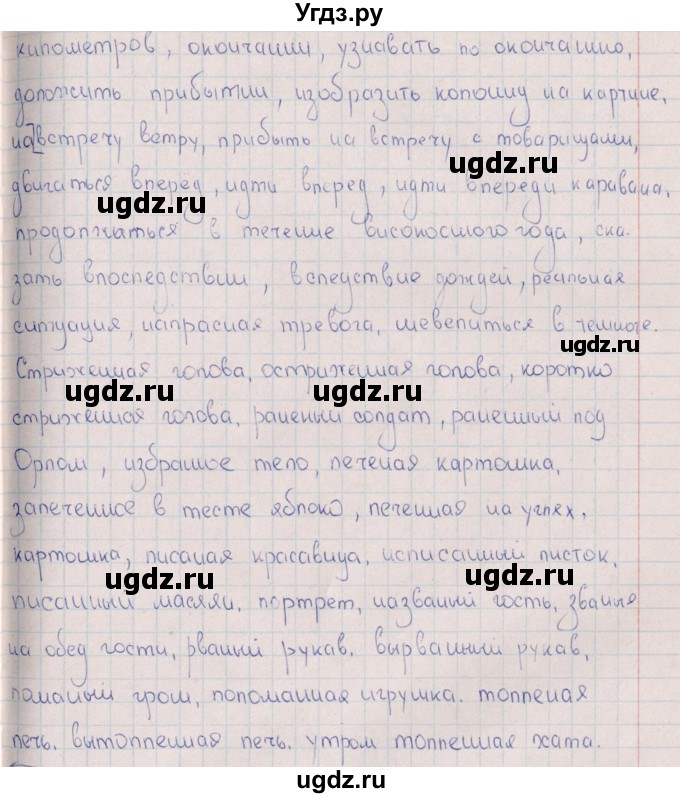 Угдз.ру
километров, окончании, узнавать по окончанию,
доложить прибытии, изобразить колонну на картине,
на встречу ветру, прибыть на встречу с товарищами,
ugdz.ru
двигаться вперёд, идти вперед, идти впереди каравана,
ugdz.ru
продолжаться в течение високосного года, ска-
зать впоследствии, вследствие дождей, реальная
ситуация, напрасная тревога, шевелиться в темноте.
ugdz.ru
Стриженная голова, остриженная голова, коротко
ugdz.ru ugdz.ru
стриженная голова, раненый солдат, раненный под
Орлом, избранное тело, печеная картошка,
запеченное в тесте яблоко, печенная на углях,
картошка, писаная красавица, исписанный листок,
ugdz.ru ugdz.ru
писанный маслян. портрет, названый гость, званые
на обед гости, рваный рукав. вырванный рукав,
ломаный грош, поломанная игрушка. топленая
печь. вытопленная печь. утром топленная хата.
ugdz.ru